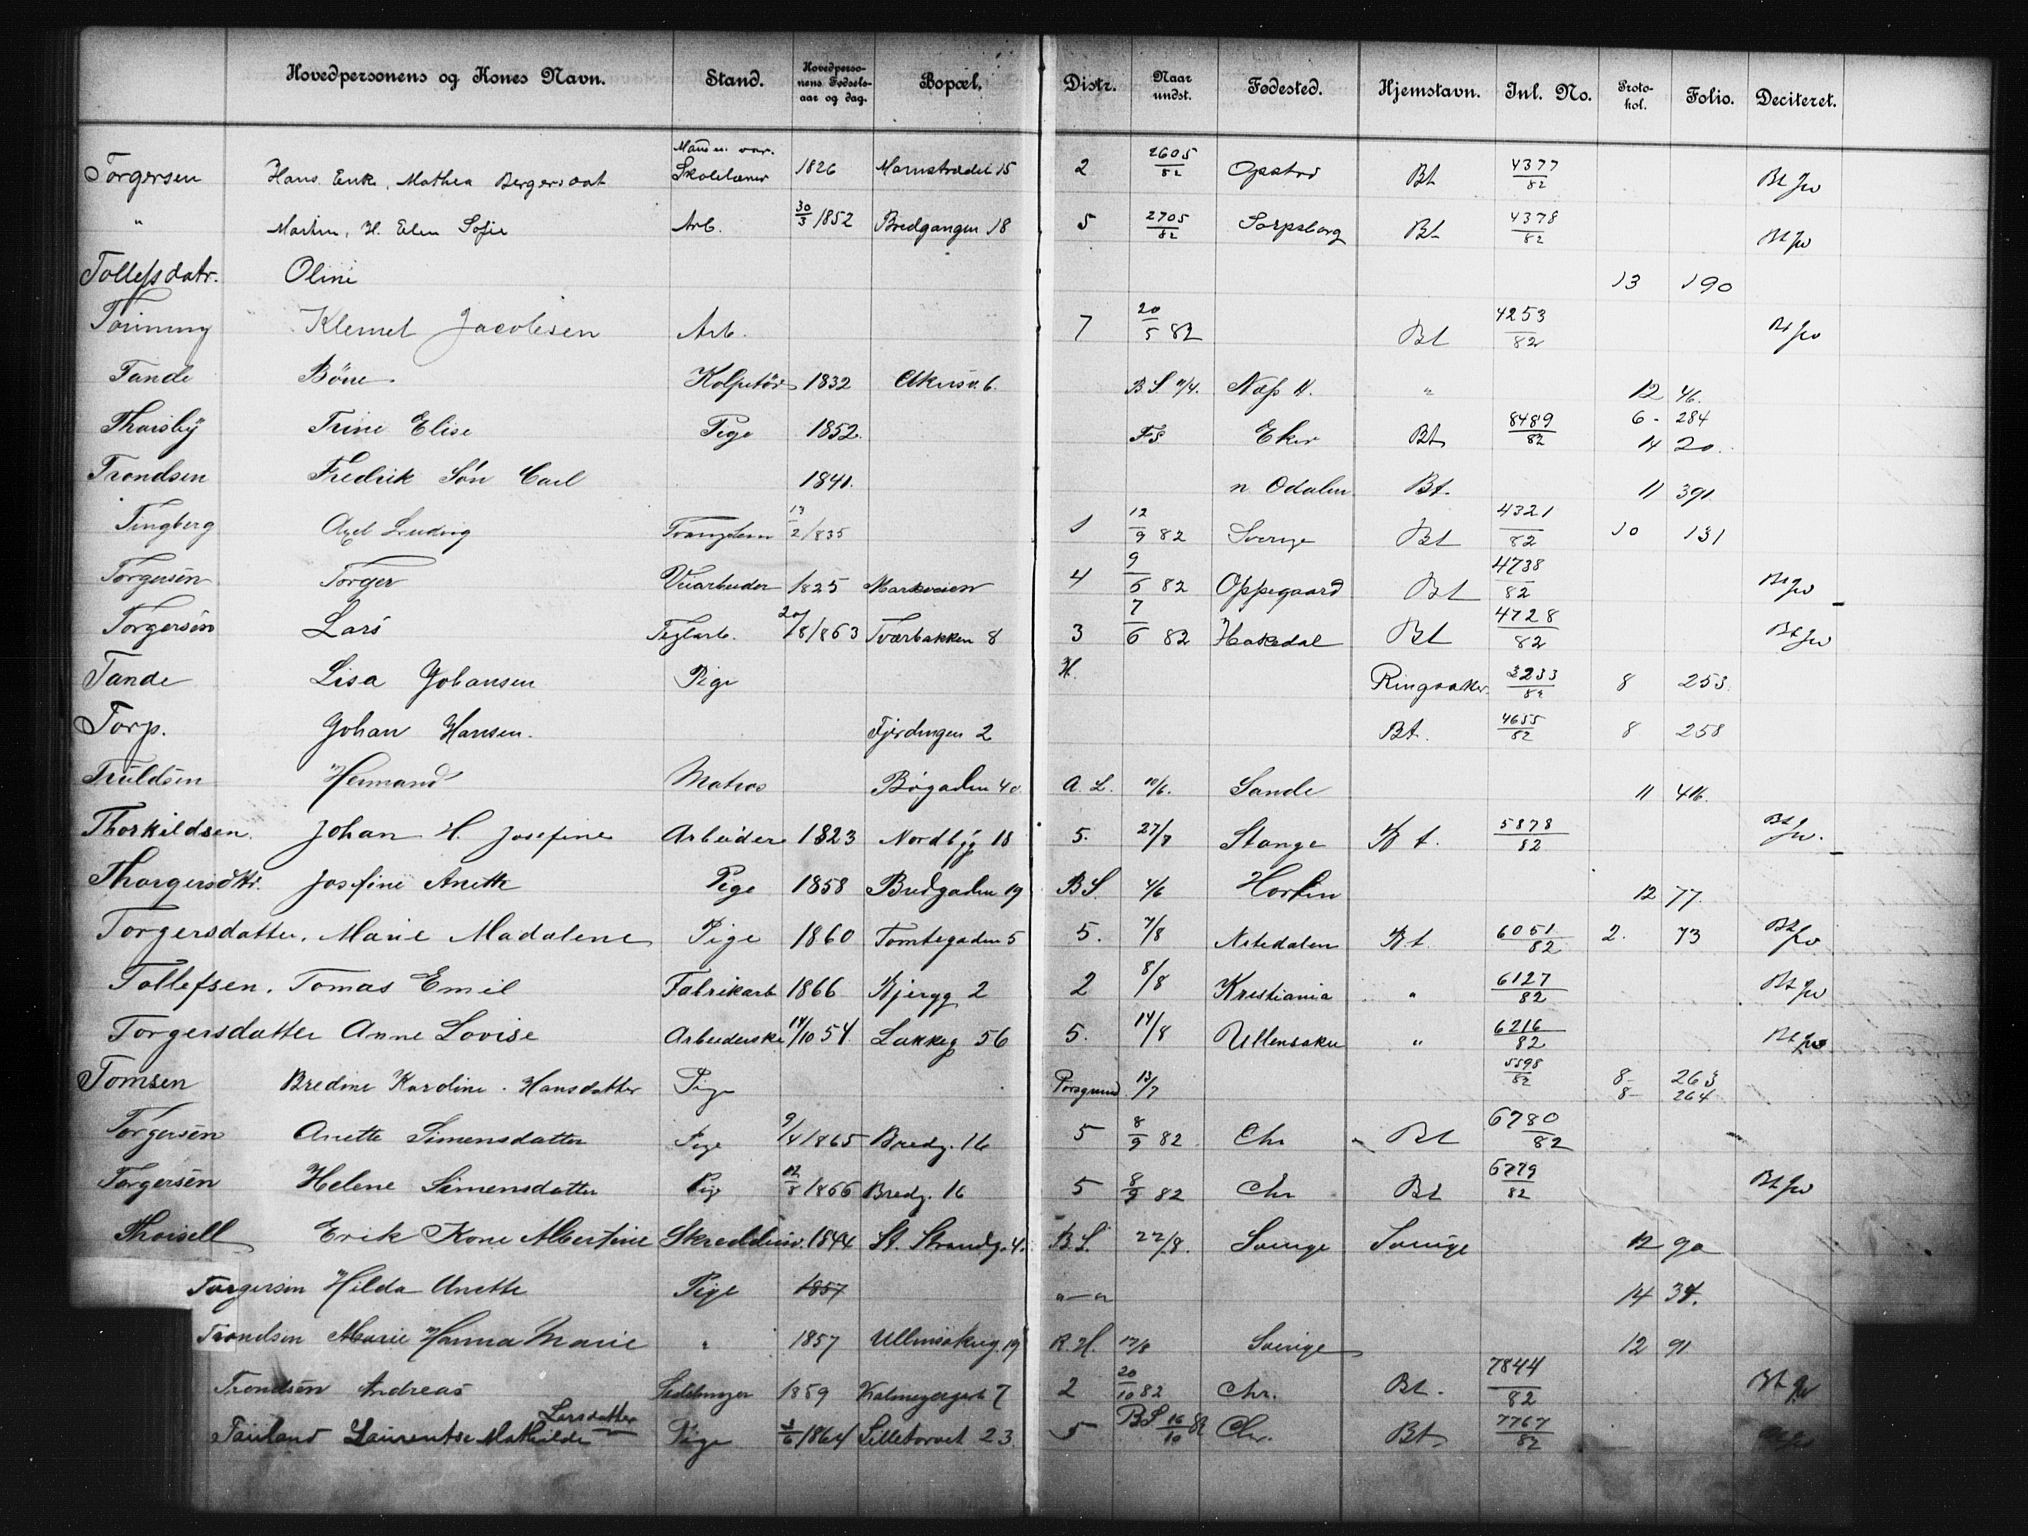 Hovedpersonens og Kones Navn. Stand. Hovedperso-nens Fødsels-aar og dag. Bopæl. Distr. Naar undst. Fødested. Hjemstavn. Inl. No. Proto-kol. Folio. Deciteret.
Torgersen Hans Enke, Mathea Bergersdat Manden var. Skolelærer 1826 2 2605/82 Bt 4377/82 Bt
" Martin, H. Elen Sofie Arb. 30/3 1852 Bredgangen 18 5 2705/82 Sarpsborg Bt 4378/82 Bt
Tollefsdatr. Oline 13 190
Klemet Jacobsen Arb. 7 20/5 82 Bt 4253/82 Bt
Tande 1832 Akersv. 6. B S Næs H. " 12 46.
Thorsby Trine Elise Pige 1852. FS Eker Bt 8489/82 6 - 284
14 20.
Trondsen Fredrik Søn Carl 1841. n Odalen Bt. 11 391
Tingberg Axel Ludvig 13/2 1835 1 12/9 82 Sverige Bt 4321/82 10 131
Torgersen Torger Veiarbeider 1825 Markveien 4 9/6 82 Oppegaard Bt 4738/82 Bt
Torgersen Lars Teglarb. 20/8 1863 Tværbakken 8 3 7/6 82 Hakedal Bt 4728/82 Bt
Tande Lisa Johansen Pige H. Ringsaker. 3233/82 8 253.
Torp. Johan Hansen. Fjerdingen 2 Bt. 4655/82 8 258
Truldsen Hermand Matros Bøgaden 40 A. L. 10/6. Sande 11 416.
Thorkildsen. Johan H. Josefine Arbeider 1823 Nordbyg 18 5. 27/7 Stange Bt. 5878/82 Bt
Thorgersdtr. Josefine Anette Pige 1858 Bredgaden 19 B S 4/6 12 77
Torgersdatter, Marie Madalene Pige 1860 Tomtegaden 5 5. 7/8 Nitedalen Bt. 6051/82 2. 73 Bt
Tollefsen. Tomas Emil Fabrikarb 1866 2 2 8/8 Kristiania " 6127/82 Bt
Torgersdatter Anne Lovise Arbeiderske 14/10 54 Lakkeg 56 5. 14/8 Ullensaker " 6216/82 Bt
Tomsen Bredine Karoline. Hansdatter Pige Porsgrund 13/7 5598/82 8- 263
8- 264
Torgersen Anette Simensdatter Pige 9/4 1865 Bredg. 16 5 8/9 82 Chr Bt 6780/82
Torgersen Helene Simensdatter Pige 12/8 1866 Bredg. 16 5 8/9 82 Chr Bt 6779/82 Bt
Thorsell Erik Kone Albertine Skreddersv. 1844 St. Strandg. 4. B S. 22/8. Sverige Sverige 12 90
Torgersen Hilda Anette Pige 1857 "—" 14 34.
Trondsen Marie Hanna Marie " 1857 Ullensakerg. 19 R. H. 12/8 Sverige 12 91
Trondsen Andreas 1859 Kalmeyergad 7 2 20/10 82 Chr. Bt. 7844/82 Bt
Larsdatter
Laurentse Mathilde Pige 1864 Lilletorvet 23 5 B S 16/10 82 Chr. Bt 7767/82